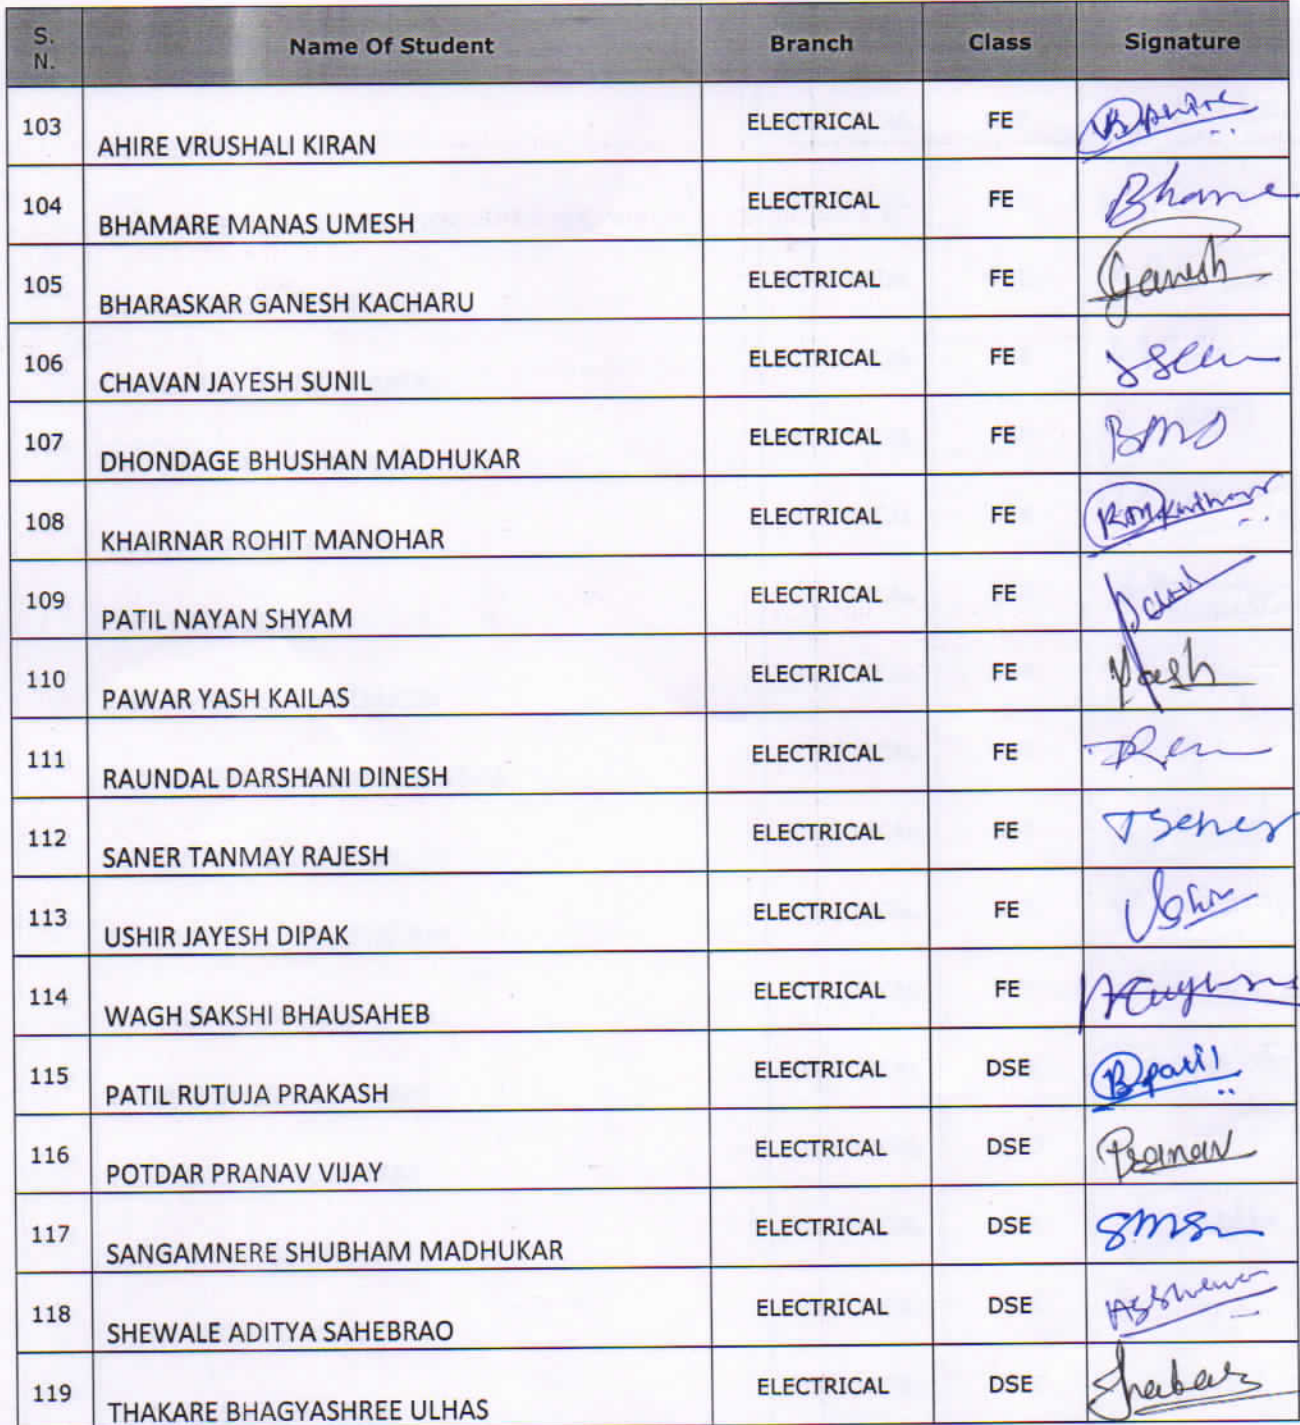 S. N. Name Of Student Branch Class Signature
103 AHIRE VRUSHALI KIRAN ELECTRICAL FE
104 BHAMARE MANAS UMESH ELECTRICAL FE
105 BHARASKAR GANESH KACHARU ELECTRICAL FE Ganesh
106 CHAVAN JAYESH SUNIL ELECTRICAL FE
107 DHONDAGE BHUSHAN MADHUKAR ELECTRICAL FE BMD
108 KHAIRNAR ROHIT MANOHAR ELECTRICAL FE
109 PATIL NAYAN SHYAM ELECTRICAL FE
110 PAWAR YASH KAILAS ELECTRICAL FE Yash
111 RAUNDAL DARSHANI DINESH ELECTRICAL FE
112 SANER TANMAY RAJESH ELECTRICAL FE
113 USHIR JAYESH DIPAK ELECTRICAL FE
114 WAGH SAKSHI BHAUSAHEB ELECTRICAL FE
115 PATIL RUTUJA PRAKASH ELECTRICAL DSE Bpatil
116 POTDAR PRANAV VIJAY ELECTRICAL DSE Pranav
117 SANGAMNERE SHUBHAM MADHUKAR ELECTRICAL DSE
118 SHEWALE ADITYA SAHEBRAO ELECTRICAL DSE
119 THAKARE BHAGYASHREE ULHAS ELECTRICAL DSE